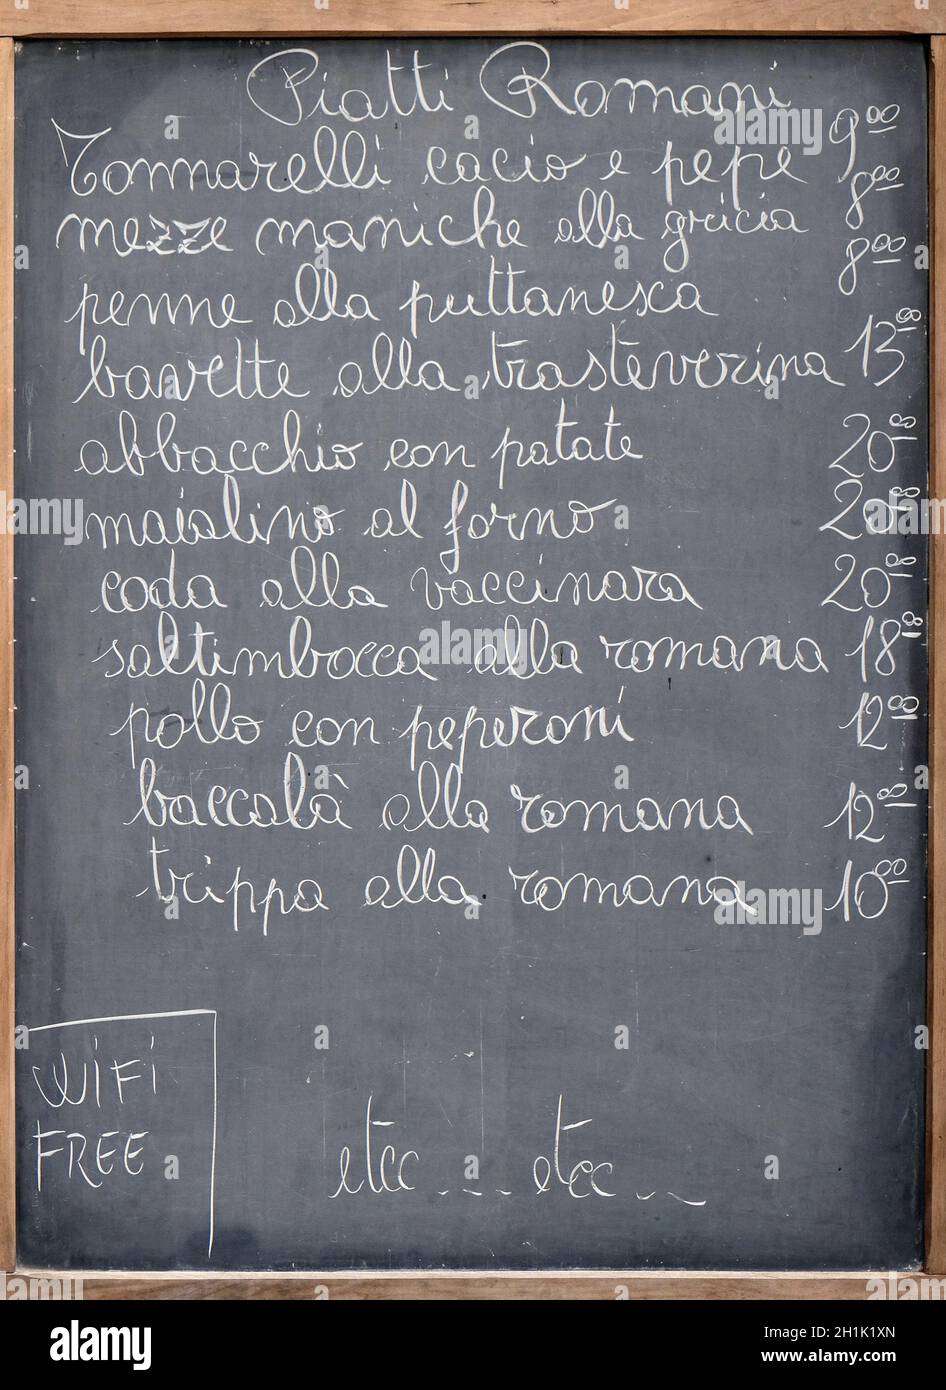 Piatti Romani
Tonnarelli cacio e pepe 9.00
mezze maniche alla gricia 8.00
penne alla puttanesca 8.00
bavette alla trasteverina 13.00
abbacchio con patate 20.00
maialino al forno 20.00
coda alla vaccinara 20.00
saltimbocca alla romana 18.00
pollo con peperoni 12.00
baccalà alla romana 12.00
trippa alla romana 10.00
WIFI
FREE
etcc... etcc...
alamy
Image ID: 2H1K1XN
www.alamy.com